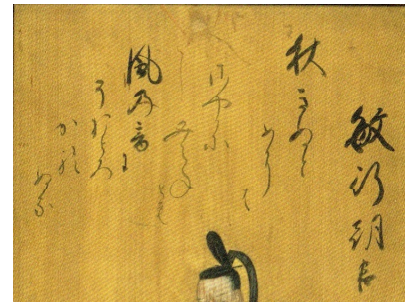 敏行朝臣
秋きぬと
めには
さやかに
みえねとも
風乃音に
そおとろ
かれ
ぬる